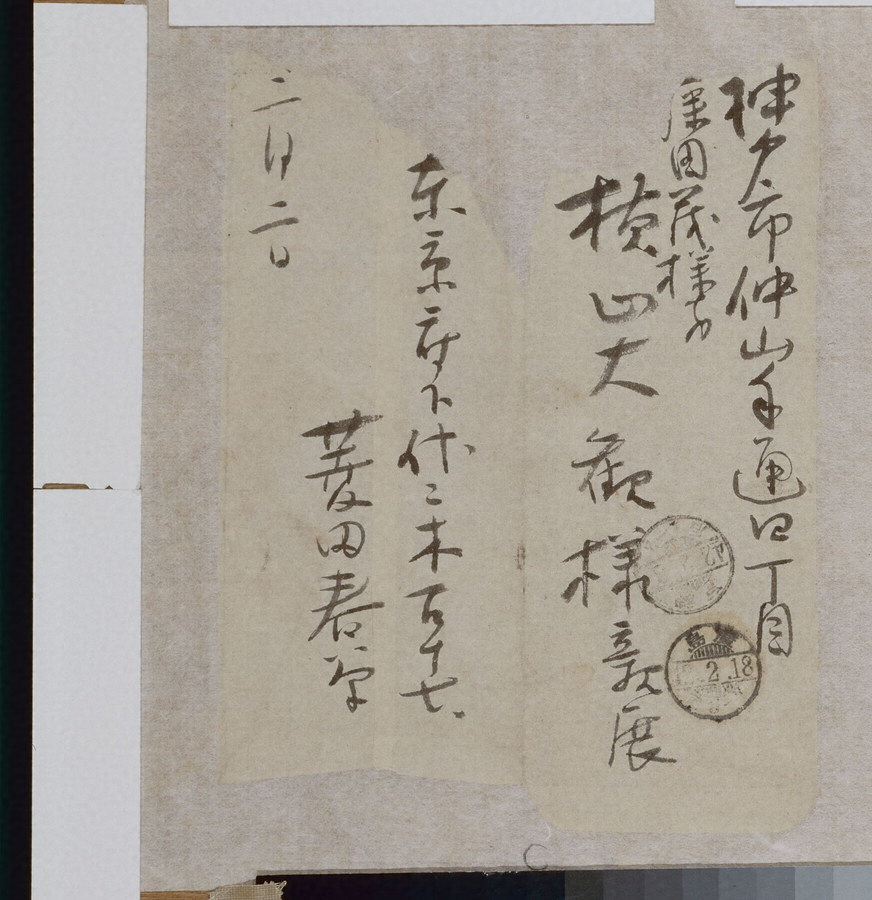 神戸市中山手通四丁目
廉田茂様方
横山大観様
親展
2.18
東京府下代々木百十七
菱田春草
二月二日